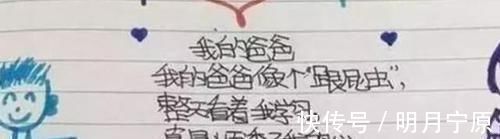 我的爸爸
我的爸爸像个“跟屁虫”,
整天看着我学习
快传号 / 明月宁原